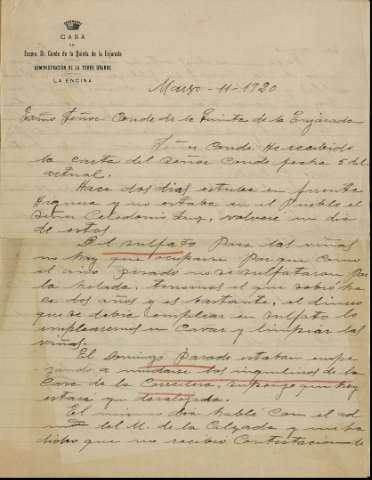 CASA
DEL
Excmo. Sr. Conde de la Quinta de la Enjarada
ADMINISTRACIÓN DE LA TORRE GRANDE
LA ENCINA
Marzo-11-1920
Exmo Señor Conde de la Quinta de la Enjarada
Señor Conde: He recibido
la carta del Señor Conde fecha 5 del
actual.
Hace dos dias estube en fuente
y no estaba en el Pueblo el
Señor Celedonio volveré un dia
de estos
Del sulfato para las viñas
no hay que ocuparse porque como
el año pasado no se sulfataron por
la helada, tenemos el que sobró ha-
ce dos años y es bastante, el dinero
que se debia emplear en sulfato lo
emplearemos en cavar y limpiar las
viñas.
El Domingo Pasado estaban empe-
zando a mudarse los inquilinos de la
Casa de la supongo que hoy
estara ya desalojada.
El mismo dia hablé con el ad-
del M. de la Calzada y me ha
dicho que no recibió Contestacion de